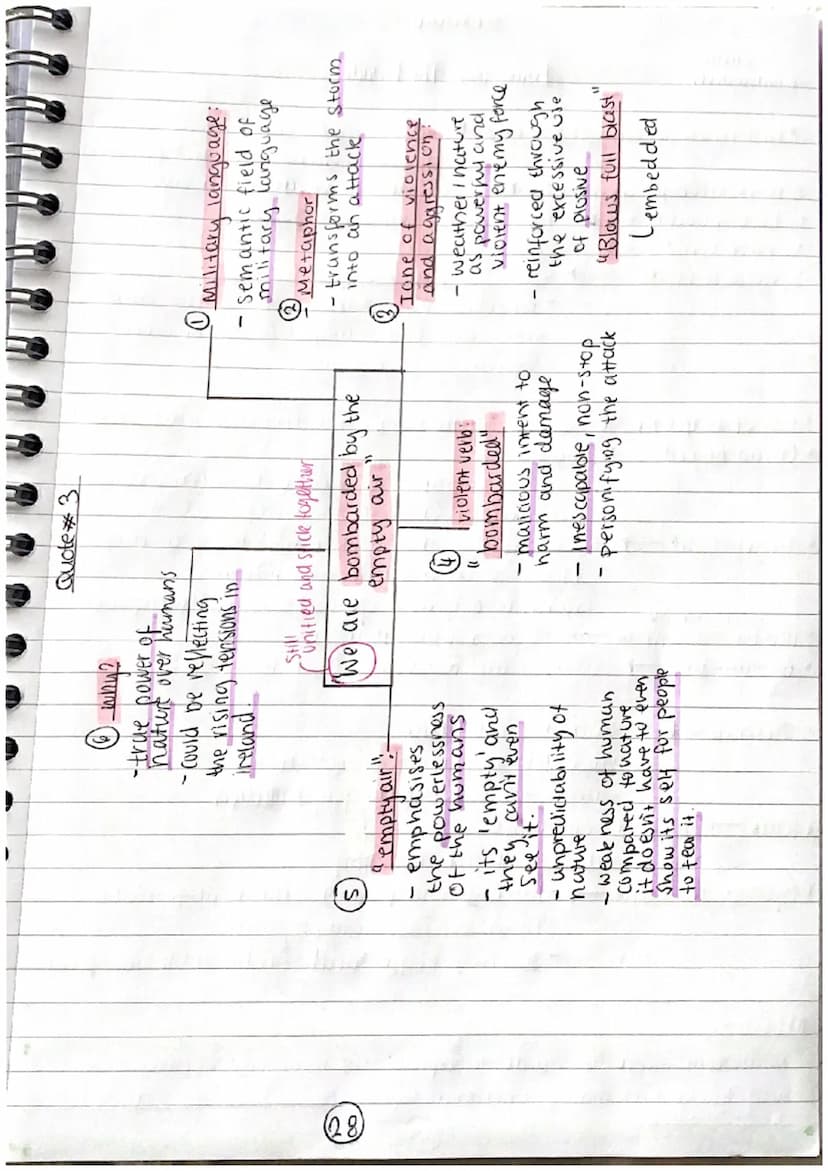 Quote # 3
⑥ Why?
- true power of
nature over humans
- could be reflecting
the rising tensions in
ireland.
① Military language:
- semantic field of
military language
② Metaphor
- transforms the storm
into an attack
③ Tone of violence
and aggression:
- weather/nature
as powerful and
violent enemy force
- reinforced through
the excessive use
of plosive
"Blows full blast"
embedded
still
unified and stick together
"We are bombarded by the
empty air"
④ violent verb:
"bombarded"
- malicious intent to
harm and damage
- inescapable, non-stop
- personifying the attack
⑤ "empty air":
- emphasises
the powerlessness
of the humans
- its 'empty' and
they can't even
see it.
- unpredictability of
nature
- weakness of human
compared to nature
it doesn't have to even
show its self for people
to fear it.
28